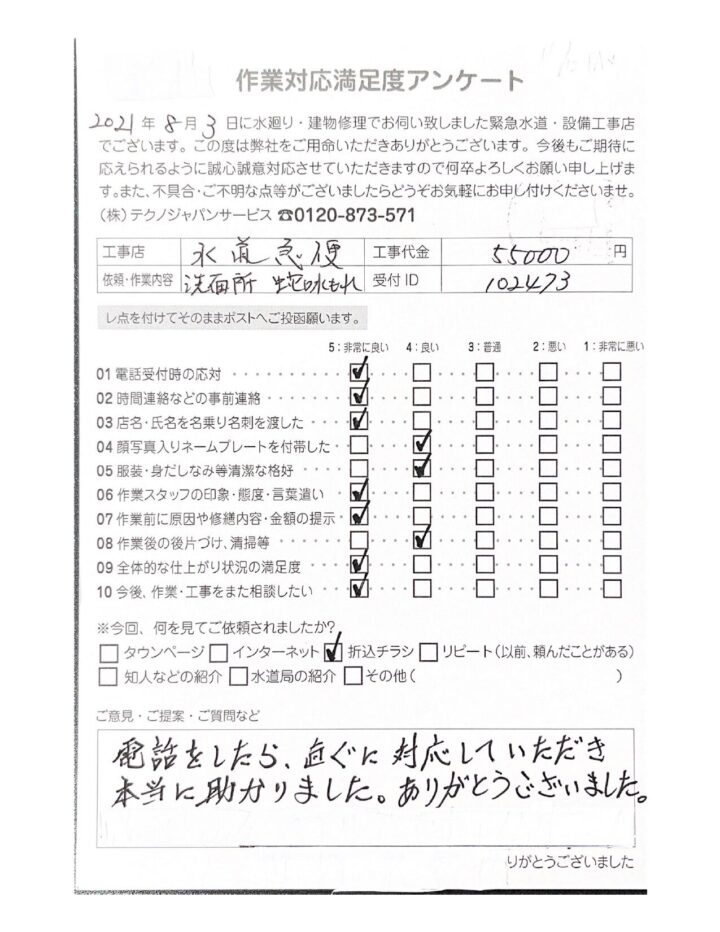 作業対応満足度アンケート
2021年8月3日に水廻り・建物修理でお伺い致しました緊急水道・設備工事店
でございます。この度は弊社をご用命いただきありがとうございます。今後もご期待に
応えられるように誠心誠意対応させていただきますので何卒よろしくお願い申し上げま
す。また、不具合・ご不明な点等がございましたらどうぞお気軽にお申し付けくださいませ。
(株)テクノジャパンサービス ☎0120-873-571
工事店 水道急便 工事代金 55000円
依頼・作業内容 洗面所 蛇口水もれ 受付ID 102473
レ点を付けてそのままポストへご投函願います。
5:非常に良い 4:良い 3:普通 2:悪い 1:非常に悪い
01 電話受付時の応対
02 時間連絡などの事前連絡
03 店名・氏名を名乗り名刺を渡した
04 顔写真入りネームプレートを付帯した
05 服装・身だしなみ等清潔な格好
06 作業スタッフの印象・態度・言葉遣い
07 作業前に原因や修繕内容・金額の提示
08 作業後の後片づけ、清掃等
09 全体的な仕上がり状況の満足度
10 今後、作業・工事をまた相談したい
※今回、何を見てご依頼されましたか?
タウンページ インターネット 折込チラシ リピート(以前、頼んだことがある)
知人などの紹介 水道局の紹介 その他( )
ご意見・ご提案・ご質問など
電話をしたら、直ぐに対応していただき
本当に助かりました。ありがとうございました。
りがとうございました